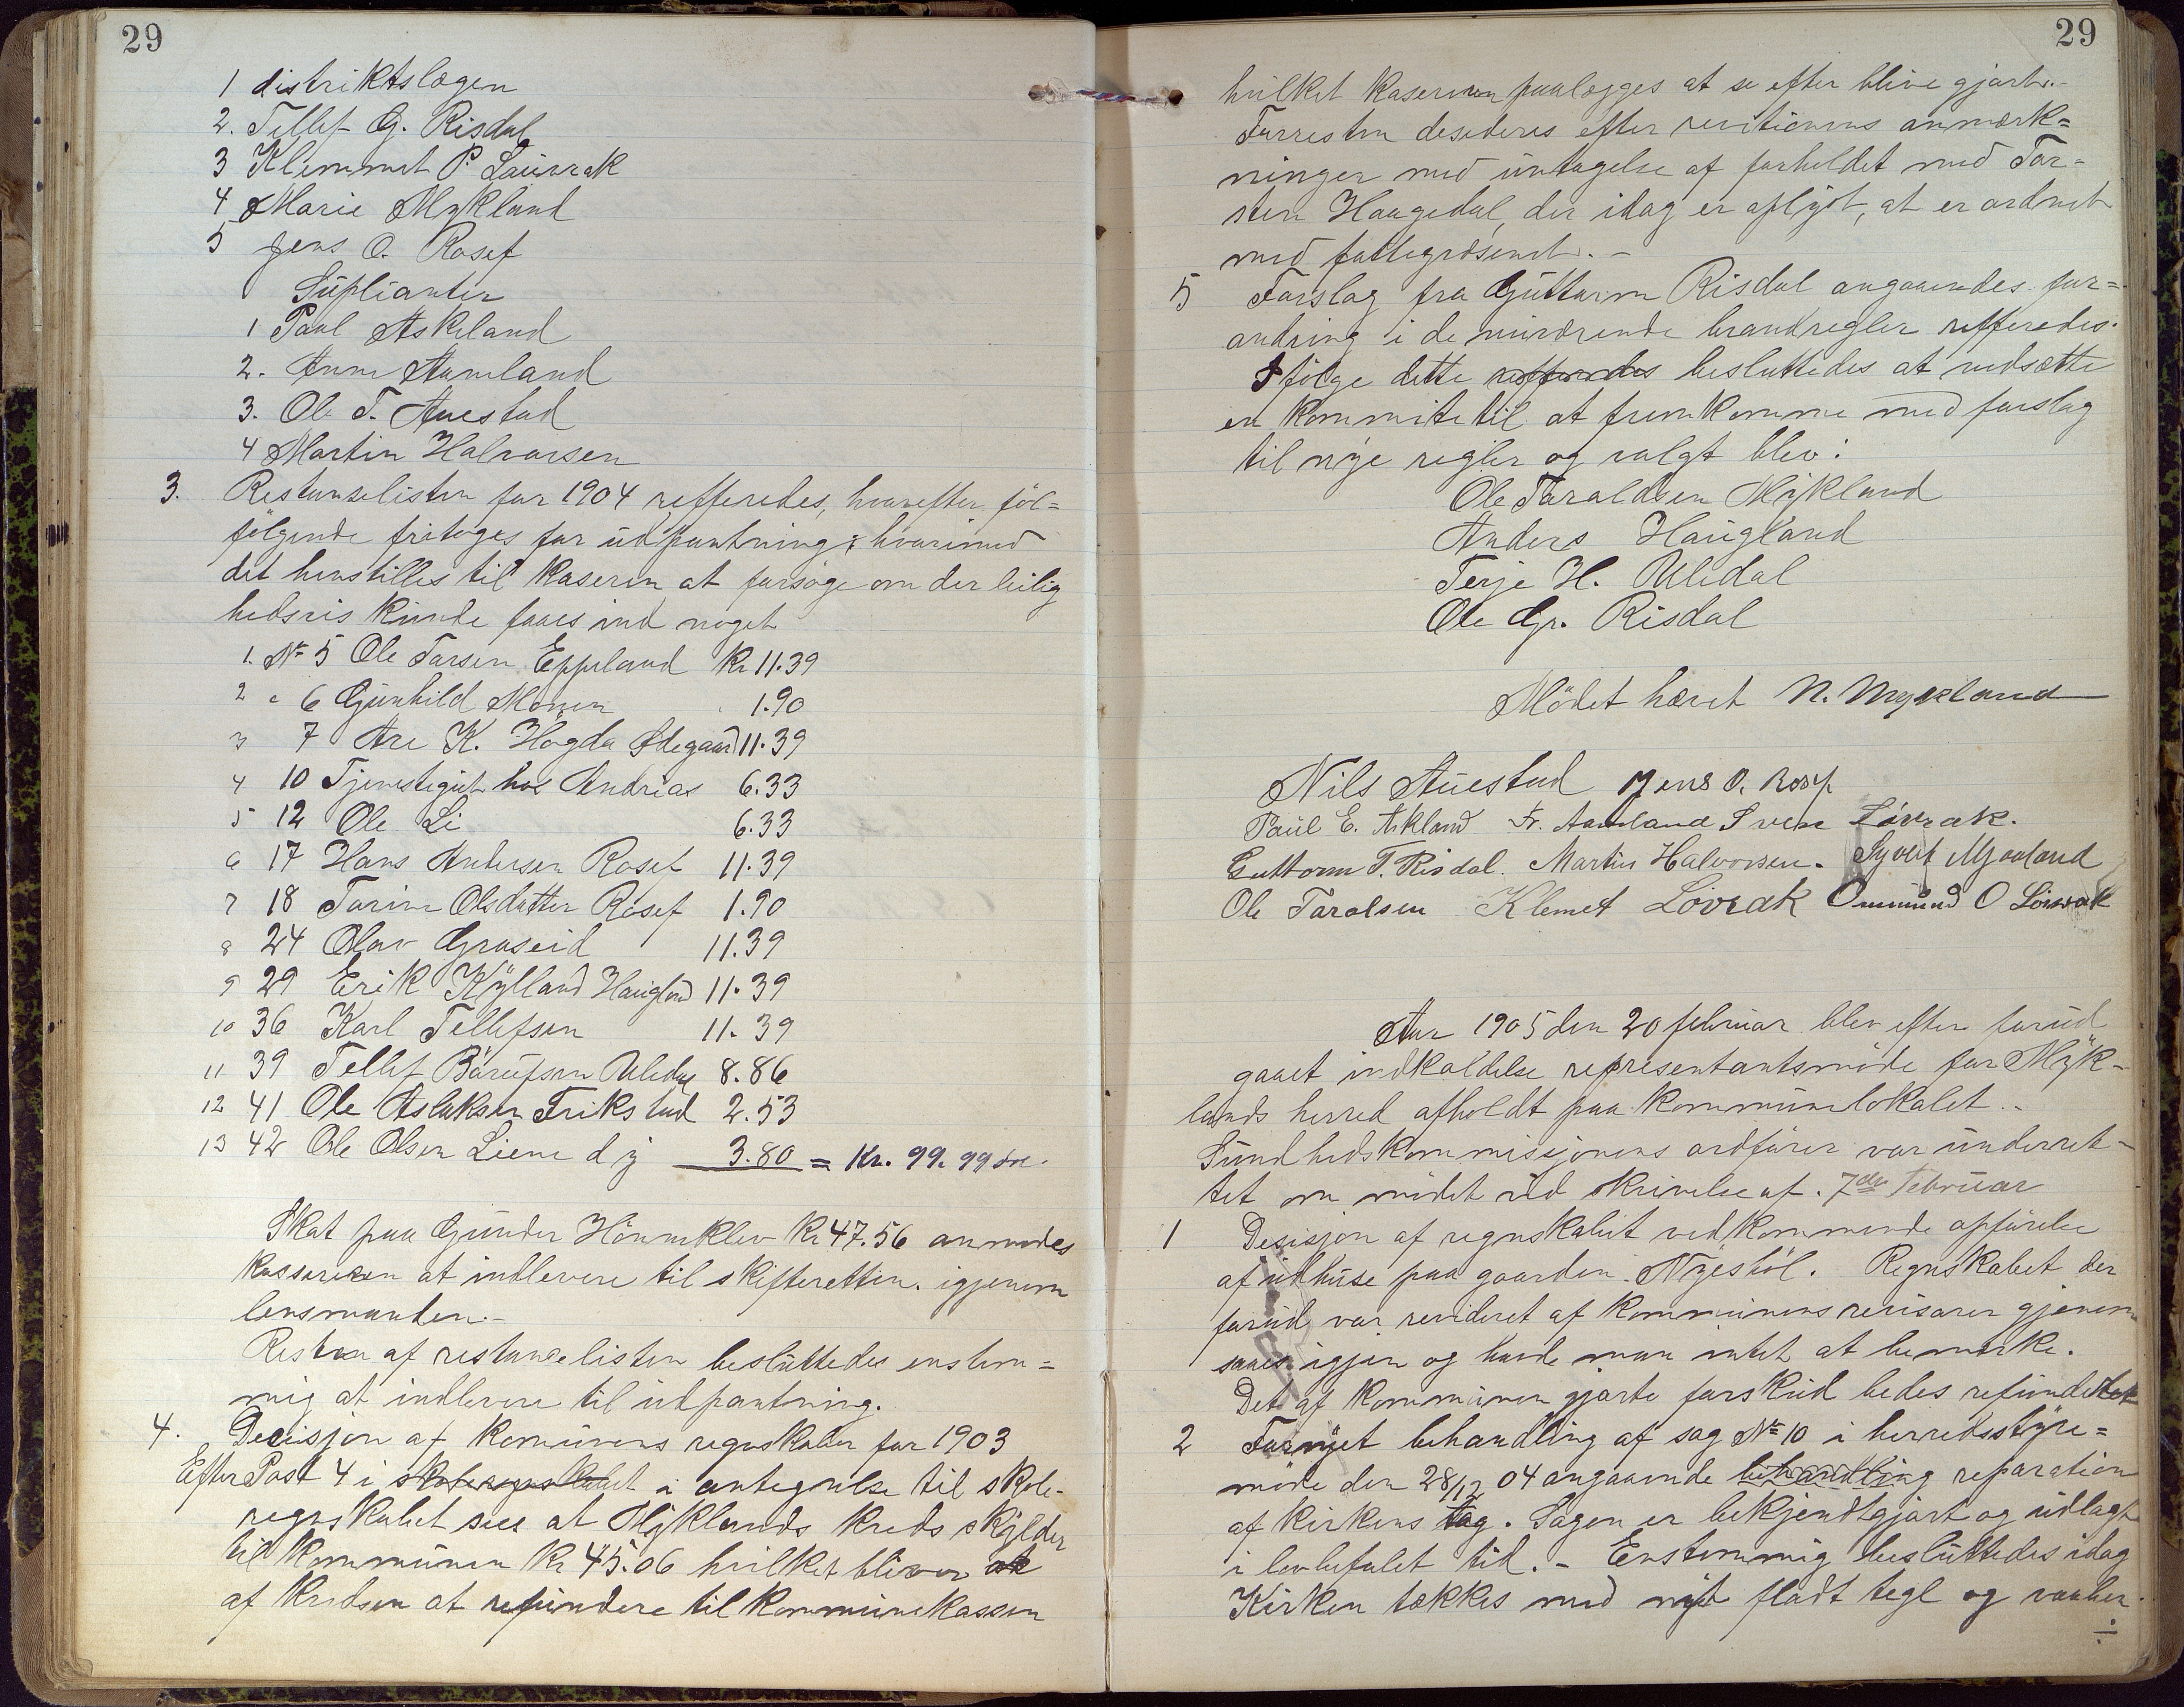 29
1 distriktslægen
2. Tellef G. Risdal
3 Klemmet P. Lauvrak
4 Marie Mykland
5 Jens O. Rosef
Süplianter
1 Paul Askeland
2. Anne Aamland
3. Ole T. Auestad
4 Martin Halvorsen
3. Restanselisten for 1904 refferedes, hvorefter föl=
følgende fritoges for üdpantning; hvorimod
det henstilles til kaseren at forsøge om der leilig
hedsvis künde faaes ind noget
1. № 5 Ole Tarsen Eppeland Kr 11.39
2 " 6 Günhild Monen 1.90
3 7 Are K. Høgda Ødegaard 11.39
4 10 Tjenstegüt hos Andrias 6.33
5 12 Ole Li 6.33
6 17 Hans Andersen Rosef 11.39
7 18 Torine Olsdatter Rosef 1.90
8 24 Olav Graseid 11.39
9 29 Erik Kÿlland Haugland 11.39
10 36 Karl Tellefsen 11.39
11 39 Tellef Bårüfsen Uledal 8.86
12 41 Ole Aslaksen Frikstad 2.53
13 42 Ole Olsen Liene d y 3.80 = Kr. 99.99 øre.
Skat paa Günder Hönneklev Kr 47.56 anmodes
kassereren at indlevere til skifteretten. igjenem
lensmanden.-
Resten af restanselisten beslüttedes enstem=
mig at indlevere til üdpantning.
4. Decisjon af komünens regnskaber for 1903
Efter Post 4 i skoleregnskabet i antegnelse til skole-
regnskabet sees at Mÿklands kreds skÿlder
til kommünen Kr 45.06 hvilket bliver at
af kredsen at refündere til kommünekassen
29
hvilket kasereren paalægges at se efter blive gjort.-
Forresten desideres efter revitionens anmærk=
ninger med üntagelse af forholdet med Tor=
sten Haugedal, der idag er oplÿst, at er ordnet
med fattigvæsenet.-
5 Forslag fra Güttorm Risdal angaaendes for=
andring i de nüværende brandregler refferedes.
Ifølge dette refferedes besluttedes at nedsætte
en kommite til at fremkomme med forslag
til nÿe regler og valgt blev:
Ole Taraldsen Mÿkland
Anders Haügland
Terje H. Uledal
Ole Gr. Risdal
Mödet hævet N. Mykland
Nils Aüestad Jens O. Rosef
Paül E. Askland Fr. Aamland Sven Lövrak.
Guttorm T. Risdal. Martin Halvorsen. Syvert Mjaaland
Ole Taralsen Klemet Lövrak Ommünd O Lövrak
Aar 1905 den 20 februar blev efter forüd
gaaet indkaldelse representantsmöde for Mÿk-
lands herred afholdt paa kommünelokalet.-
Sündhedskommisjonens ordfører var ünderret-
tet om mödet ved skrivelse af. 7de Februar
1 Desisjon af regnskabet vedkommende opførelse
af üdhüse paa gaarden Nÿeshöl. Regnskabet der
forüd var revideret af kommünens revisorer gjenem
saaes igjen og havde man intet at bemærke.
Det af kommünen gjorte forsküd bedes refünderet
2 Fornÿet behandling af sag № 10 i herredsstÿre=
möde den 28/12 04 angaaende behandling reparation
af kirkens tag. Sagen er bekjendtgjort og üdlagt
i lovbefalet tid.- Enstemmig beslüttedes idag
Kirken tækkes med nÿt fladt tegl og vauber
÷